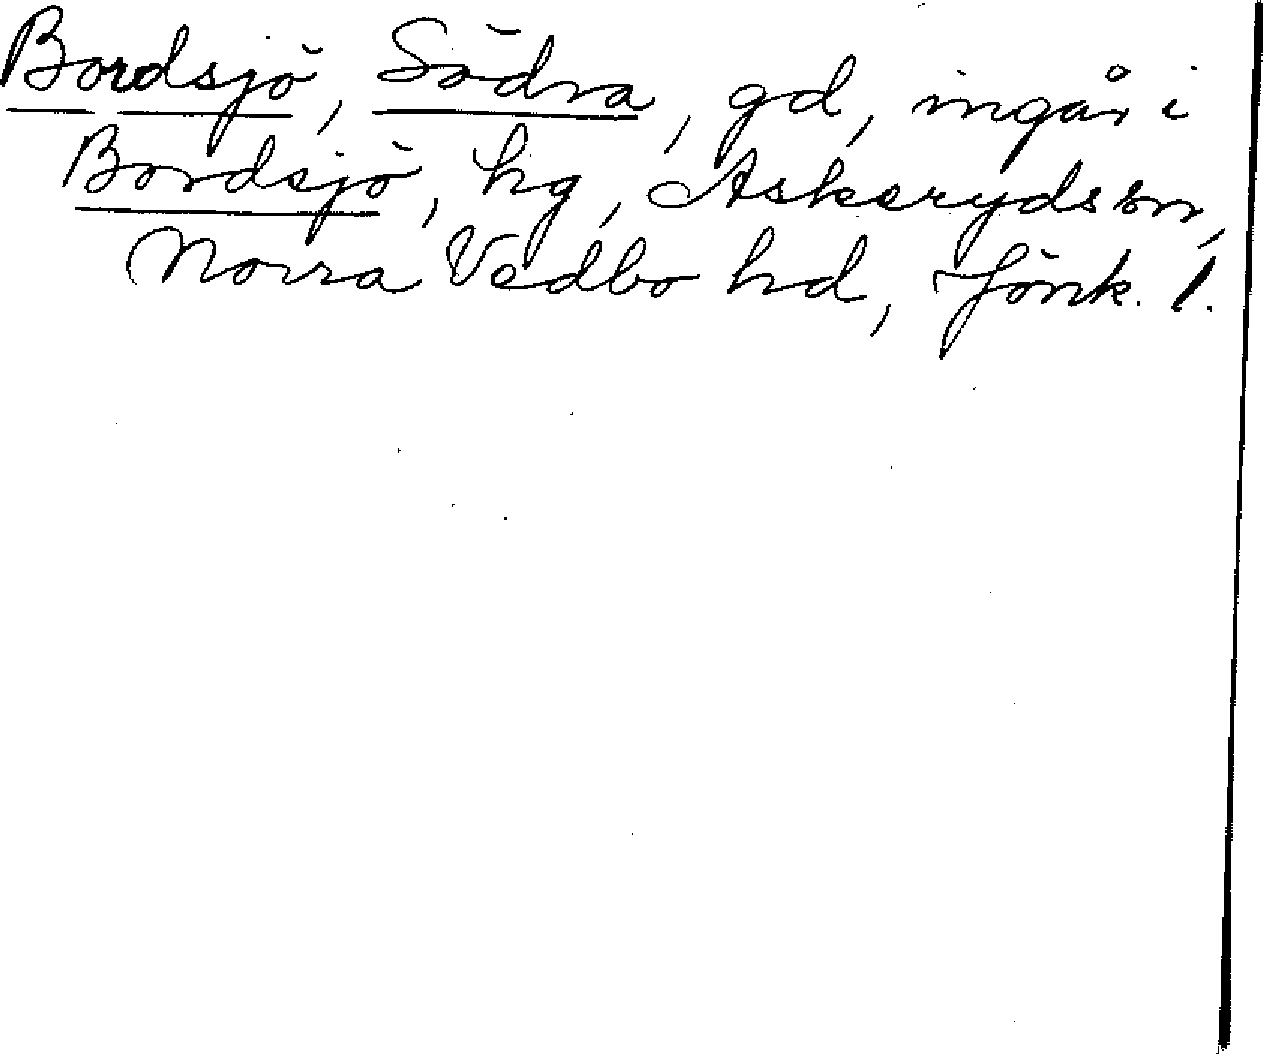 Bordsjö, Södra, gd, ingår i
Bordsjö, hg, Askeryds sn,
Norra Vedbo hd, Jönk. l.